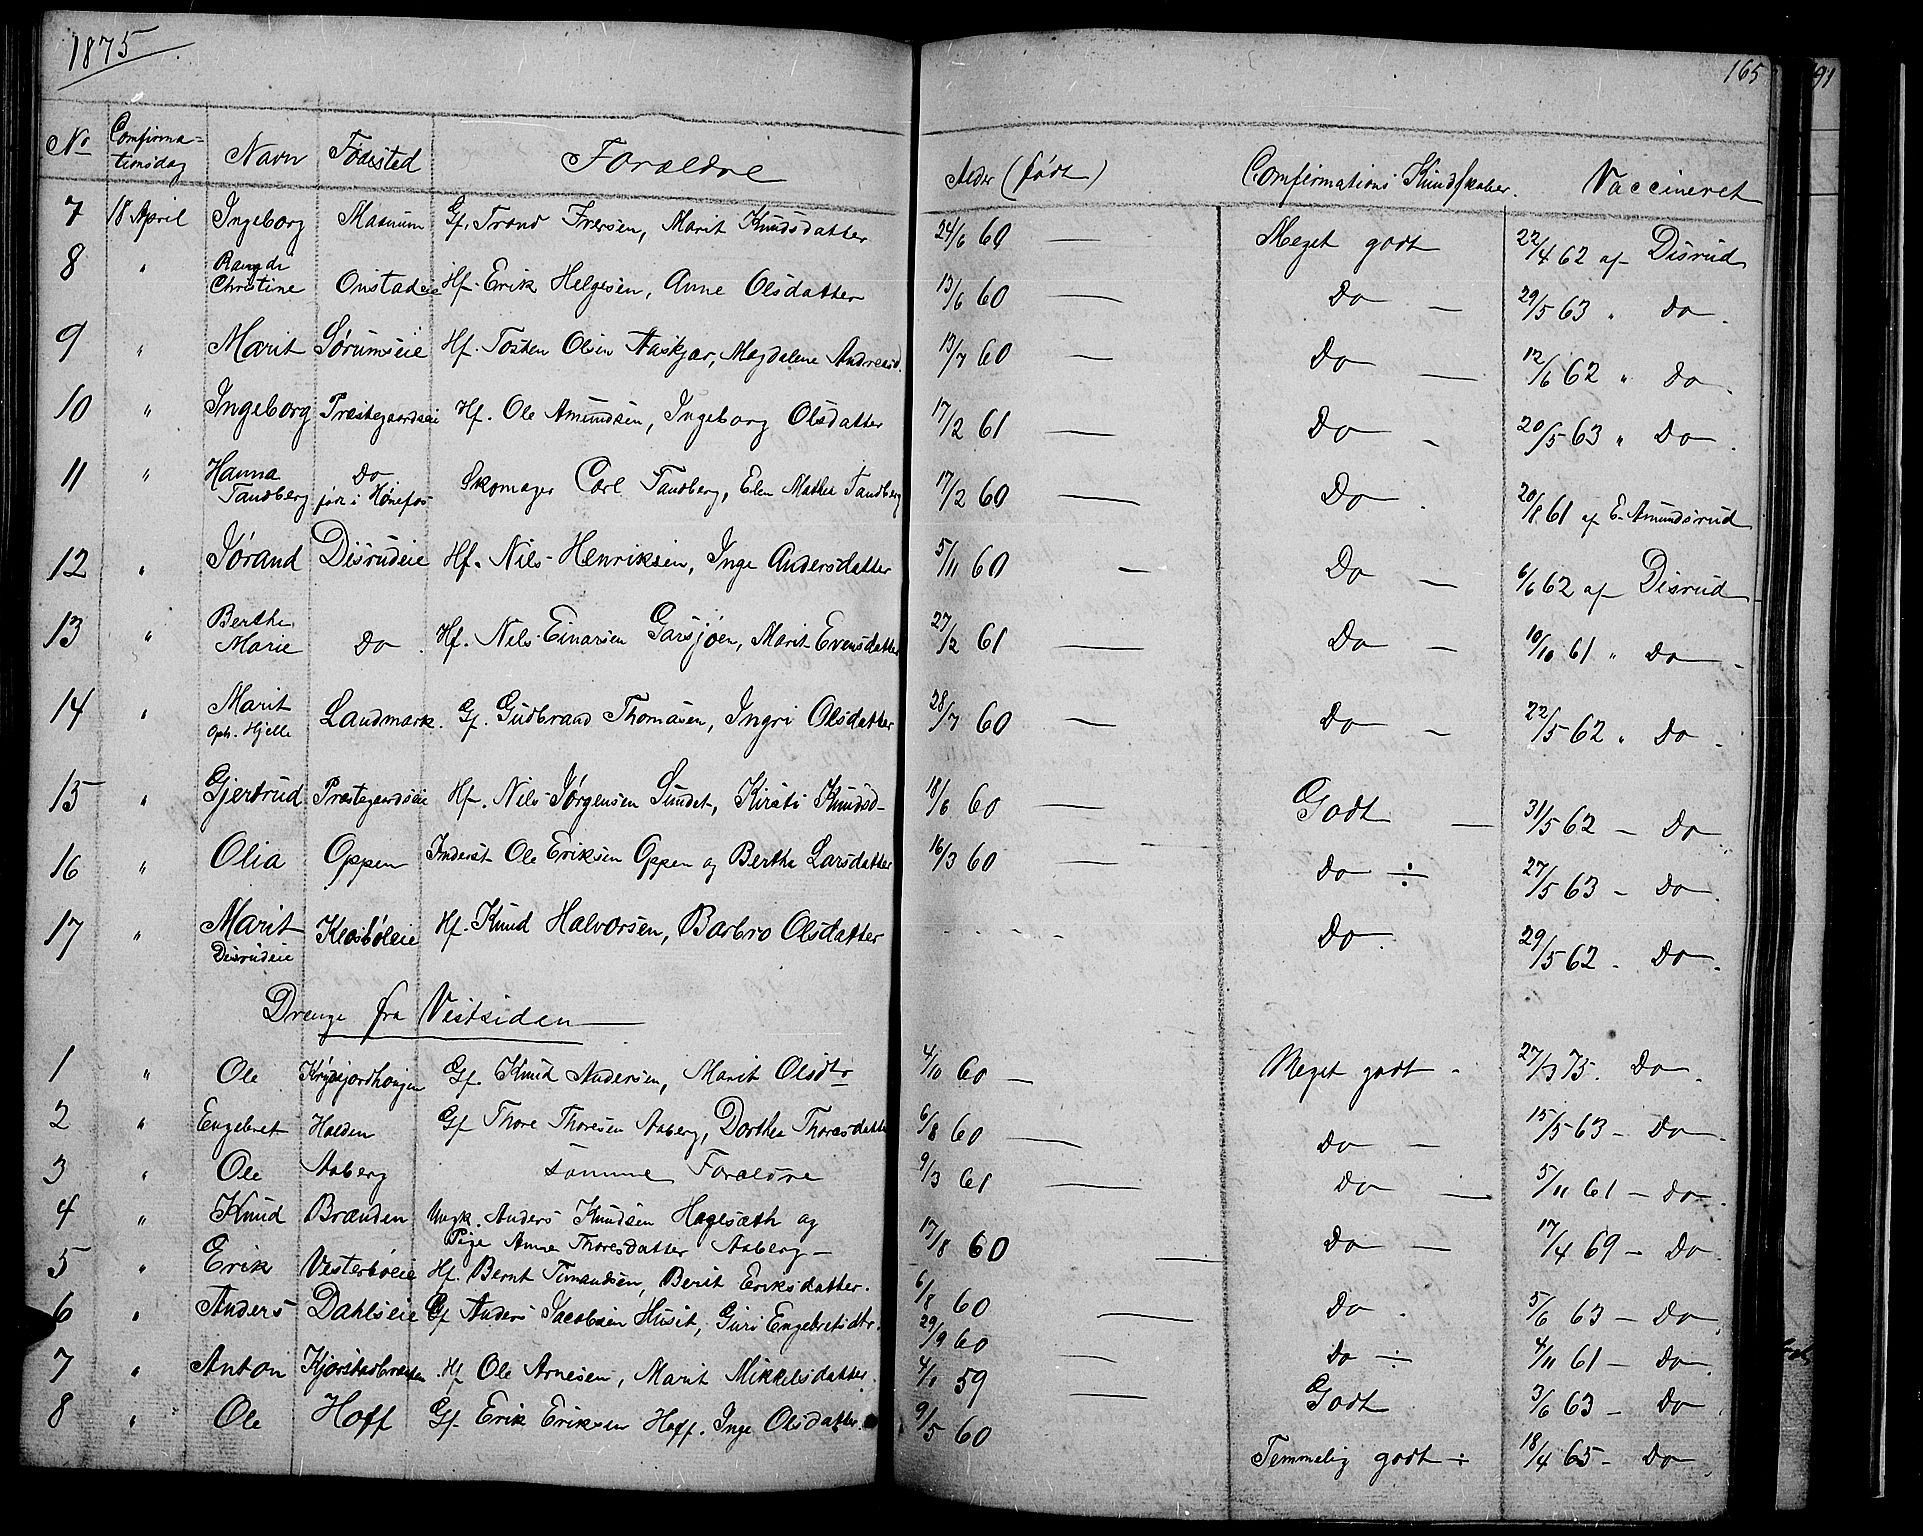 1875
165
91
No Comfirma-tionsdag Navn Fødested Forældre Alder (født) Comfirmations Kundskaber. Vaccineret
7 18 April Ingeborg Gf. Trond Iversen, Marit Knudsdatter 24/6 60 — Meget godt 22/4 62 af Disrud
8 " Rangdi Christine Onstadeie Hf. Erik Helgesen, Anne Olsdatter 13/6 60 — Do — 29/5 63 " Do.
9 " Marit Sørumseie Hf. Tosten Olsen Aaskjær, Magdalene Andreasd. 13/7 60 — Do — 12/6 62 " Do.
10 " Ingeborg Præstegaardseie Hf. Ole Amundsen, Ingeborg Olsdatter 17/2 61 — Do — 20/5 63 " Do.
11 " Hanna Tandberg Do født i Hønefos Skomager Carl Tandberg, Elen Mathea Tandberg 17/2 60 — Do. 20/8 61 af E. Amundsrud
12 " Jørand Disrudeie Hf. Nils Henriksen, Inge Andersdatter 5/11 60 — Do — 6/6 62 af Disrud
13 " Berthe Marie Do. Hf. Nils Einarsen Garsjøen, Marit Evensdatter 27/2 61 — Do — 10/10 61 " Do —
14 " Marit oph. Hjelle Landmark. Gf. Gudbrand Thomasen, Ingri Olsdatter 28/7 60 — Do — 22/5 62 " Do.
15 " Gjertrud Præstegaardseie Hf. Nils Jørgensen Sundet, Kirsti Knudsd- 18/6 60 — Godt — 31/5 62 — Do
16 " Olia Oppen Inderst Ole Eriksen Oppen og Berthe Larsdatter 16/3 60 — Do ÷ 27/5 63 — Do.
17 " Marit Disrudeie Hf. Knud Halvorsen, Barbro Olsdatter Do. 29/5 62. Do.
Drenge fra Vestsiden
1 " Ole Gf. Knud Andersen, Marit Olsdtr 4/10 60 — Meget godt - 27/3 75. Do.
2 " Engebret Halden Gf Thore Thoresen Aaberg, Dorthea Thoresdatter 6/8 60 — Do — 15/5 63 — Do.
3 " Ole Aaberg samme Forældre 9/3 61 — Do — 5/11 61 — Do.
4 " Knud Brænden Ungk. Anders Knudsen Hagesæth og
Pige Anne Thoresdatter Aaberg — 17/8 60 — Do — 17/4 69 — Do.
5 " Erik Vesterbøeie Hf. Bernt Timandsen, Berit Eriksdatter. 6/8 60 — Do. 5/6 63 — Do.
6 " Anders Dahlseie Gf Anders Jacobsen Huset, Guri Engebretsdtr. 29/9 60 — Do ÷ 4/11 61 — Do.
7 " Anton Hf Ole Arnesen, Marit Mikkelsdatter. 59 — Godt 3/6 63 — Do
8 " Ole Hoff Gf. Erik Eriksen Hoff. Inge Olsdatter 9/5 60 Temmelig godt ÷ 18/4 65 — Do.